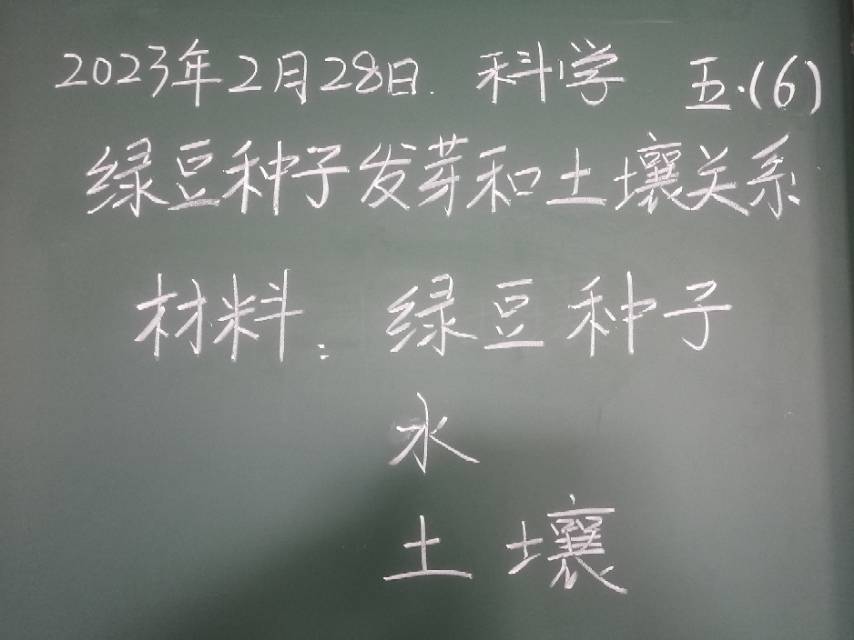 2023年2月28日. 科学 五·(6)
绿豆种子发芽和土壤关系
材料: 绿豆种子
水
土壤